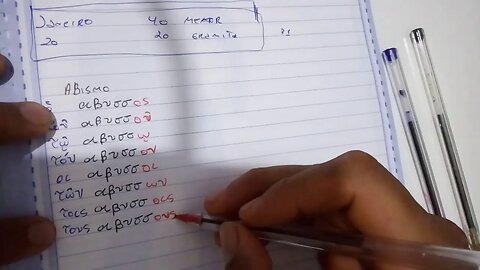 JANEIRO 40 MENOR
20 20 GRAMITA 21
ABISMO
αβυσσος
αβυσσοῦ
τῷ αβυσσῳ
τὸν αβυσσον
οι αβυσσοι
τῶν αβυσσων
τοις αβυσσοις
τους αβυσσους